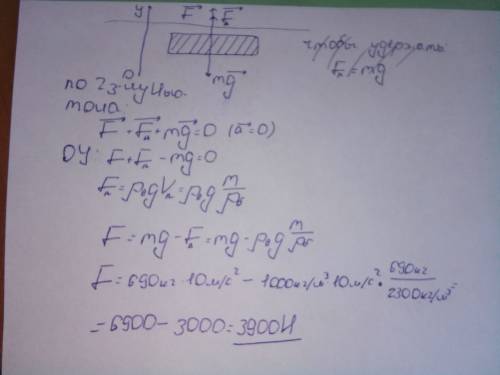 y F⃗ F⃗A
чтобы удержать
Fл = mg
O mg⃗
по 2 з-ну Нью-
тона:
F⃗ + F⃗A + mg⃗ = 0 (a⃗ = 0)
OY: F + FA - mg = 0
FA = ρвgVл = ρвg m/ρб
F = mg - FA = mg - ρвg m/ρб
F = 690кг · 10м/с² - 1000кг/м³ 10м/с² · 690кг/2300кг/м³ =
= 6900 - 3000 = 3900Н